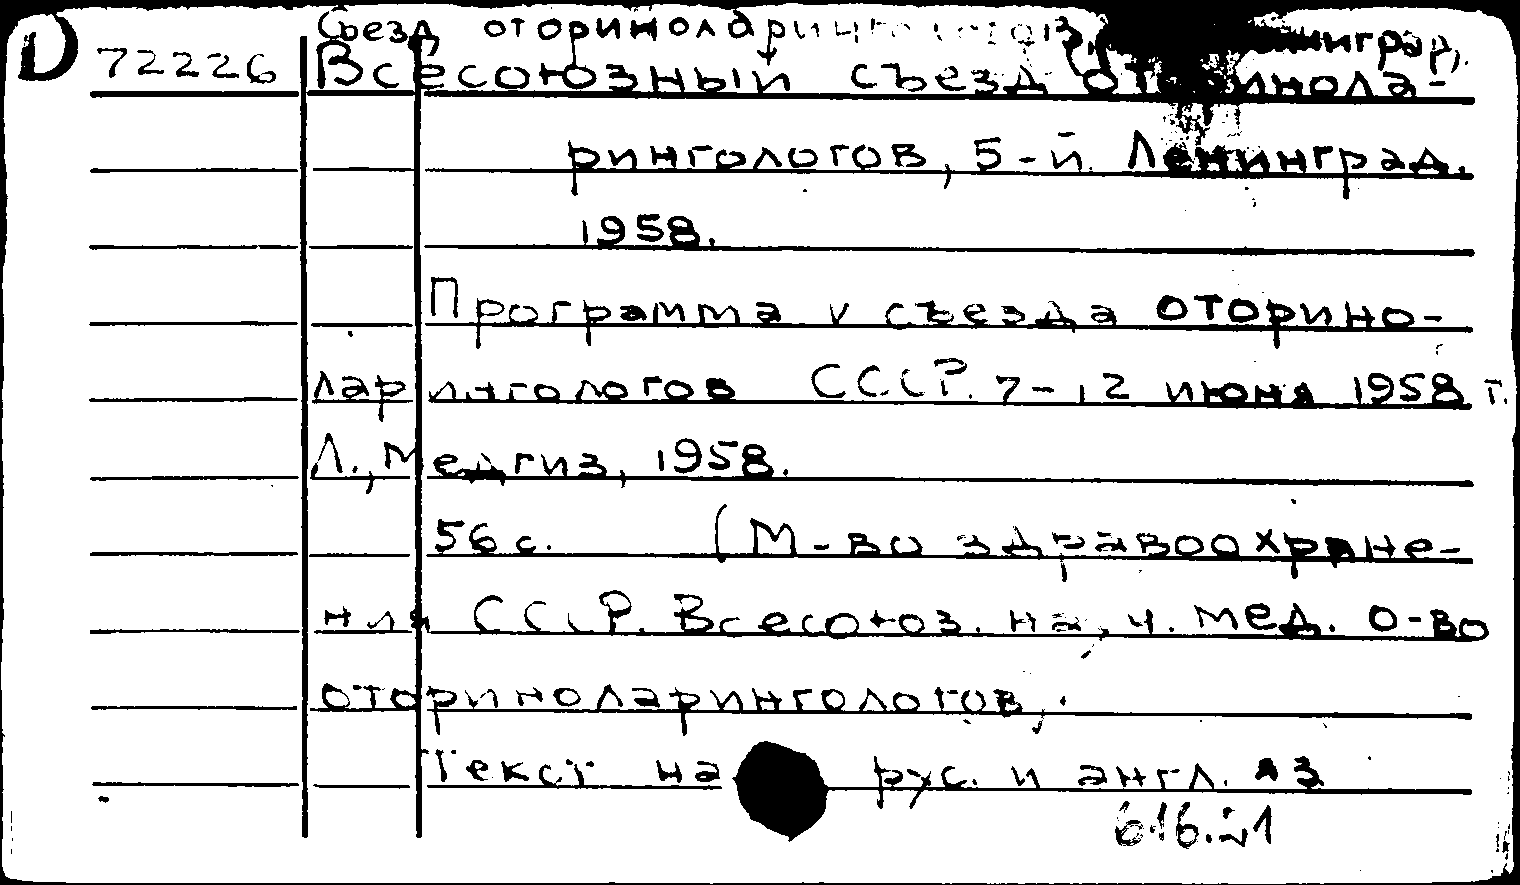 D
Съезд оториноларингологов,
72226 Всесоюзный съезд оторинола-
рингологов, 5-й. Ленинград.
1958.
Программа V съезда оторино-
ларингологов СССР. 7-12 июня 1958 г.
Л., Медгиз, 1958.
56 с. (М-во здравоохране-
ния СССР. Всесоюз. науч. мед. о-во
оториноларингологов.
Текст на рус. и англ. яз
616.21